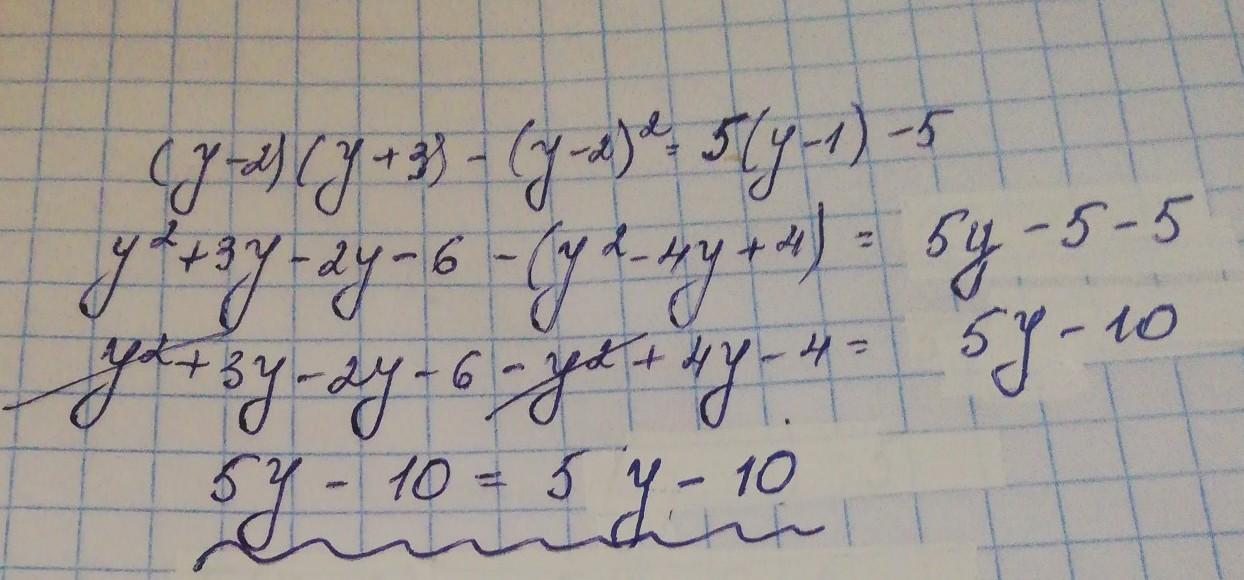 (y-2)(y+3)-(y-2)²=5(y-1)-5
y²+3y-2y-6-(y²-4y+4)=5y-5-5
y²+3y-2y-6-y²+4y-4=5y-10
5y-10=5y-10